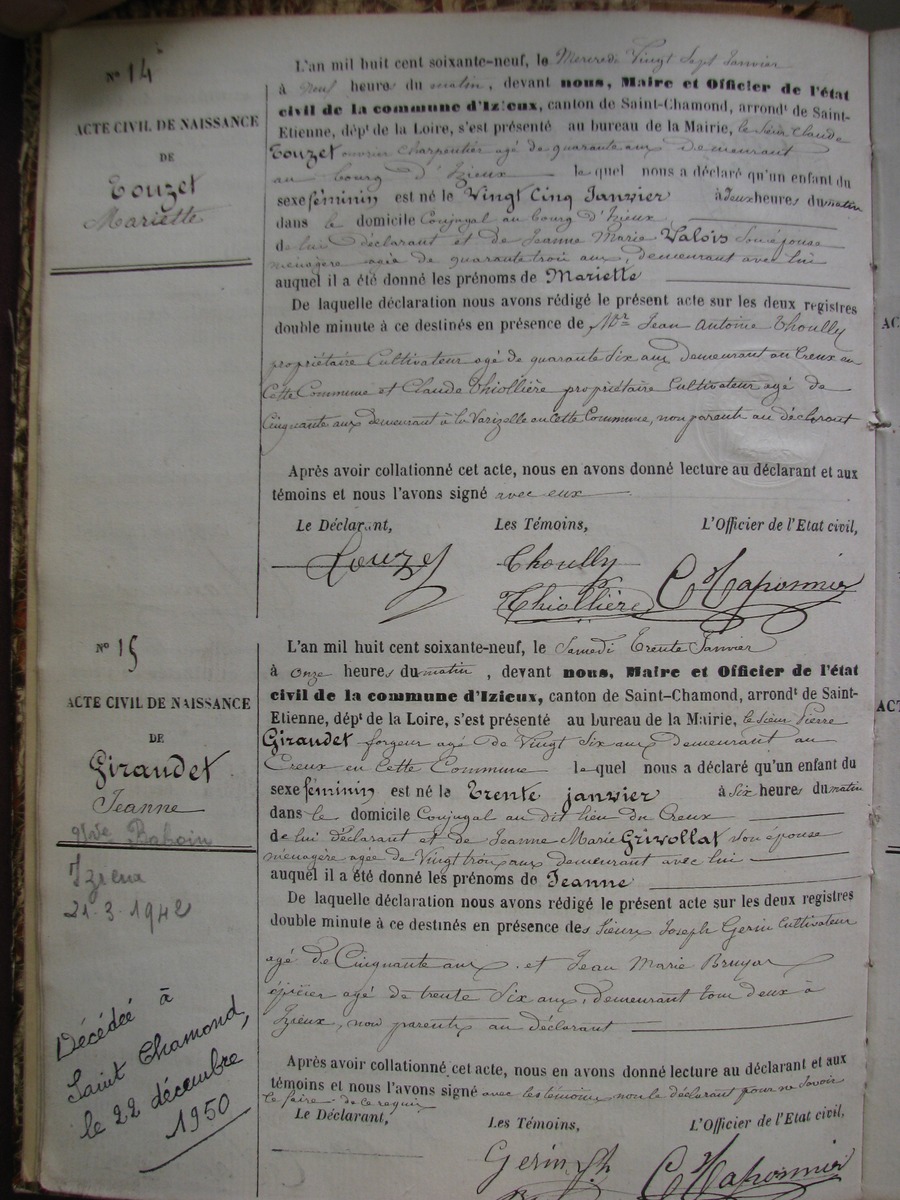 N° 14
ACTE CIVIL DE NAISSANCE
DE
Touzet
Mariette
L'an mil huit cent soixante-neuf, le Mercredi Vingt Sept Janvier
à neuf heure du matin, devant nous, Maire et Officier de l'état
civil de la commune d'Izieux, canton de Saint-Chamond, arrondt de Saint-
Etienne, dépt de la Loire, s'est présenté au bureau de la Mairie, le sieur Claude
Touzet ouvrier Charpentier agé de quarante ans demeurant
au bourg d'Izieux lequel nous a déclaré qu'un enfant du
sexe féminin est né le Vingt Cinq Janvier à deux heures du matin
dans le domicile Conjugal au bourg d'Izieux
de lui déclarant et de Jeanne Marie Valois son épouse
ménagère agée de quarante trois ans, demeurant avec lui
auquel il a été donné les prénoms de Mariette
De laquelle déclaration nous avons rédigé le présent acte sur les deux registres
double minute à ce destinés en présence de Mr Jean Antoine Thoully
propriétaire Cultivateur agé de quarante Six ans demeurant au Creux en
Cette Commune et Claude Thiollière propriétaire Cultivateur agé de
Cinquante ans demeurant à la Varizelle en cette Commune, non parents au déclarant
Après avoir collationné cet acte, nous en avons donné lecture au déclarant et aux
témoins et nous l'avons signé avec eux
Le Déclarant, Les Témoins, L'Officier de l'Etat civil,
Touzet Thoully
Thiollière C Chaponnier
N° 15
ACTE CIVIL DE NAISSANCE
DE
Giraudet
Jeanne
Izieux
21-3-1942
Décédée à
Saint Chamond,
le 22 décembre
1950
L'an mil huit cent soixante-neuf, le Samedi Trente Janvier
à onze heures du matin, devant nous, Maire et Officier de l'état
civil de la commune d'Izieux, canton de Saint-Chamond, arrondt de Saint-
Etienne, dépt de la Loire, s'est présenté au bureau de la Mairie, le sieur Pierre
Giraudet forgeur agé de Vingt Six ans demeurant au
Creux en Cette Commune lequel nous a déclaré qu'un enfant du
sexe féminin est né le Trente janvier à six heures du matin
dans le domicile Conjugal au dit lieu du Creux
de lui déclarant et de Jeanne Marie Grivollat son épouse
ménagère agée de Vingt trois ans demeurant avec lui
auquel il a été donné les prénoms de Jeanne
De laquelle déclaration nous avons rédigé le présent acte sur les deux registres
double minute à ce destinés en présence des Sieurs Joseph Gerin Cultivateur
agé de Cinquante ans et Jean Marie Bruyas
épicier agé de trente Six ans, demeurant tous deux à
Izieux, non parents au déclarant
Après avoir collationné cet acte, nous en avons donné lecture au déclarant et aux
témoins et nous l'avons signé avec les témoins non le déclarant pour ne Savoir
le faire de ce requis
Le Déclarant, Les Témoins, L'Officier de l'Etat civil,
Gerin C Chaponnier